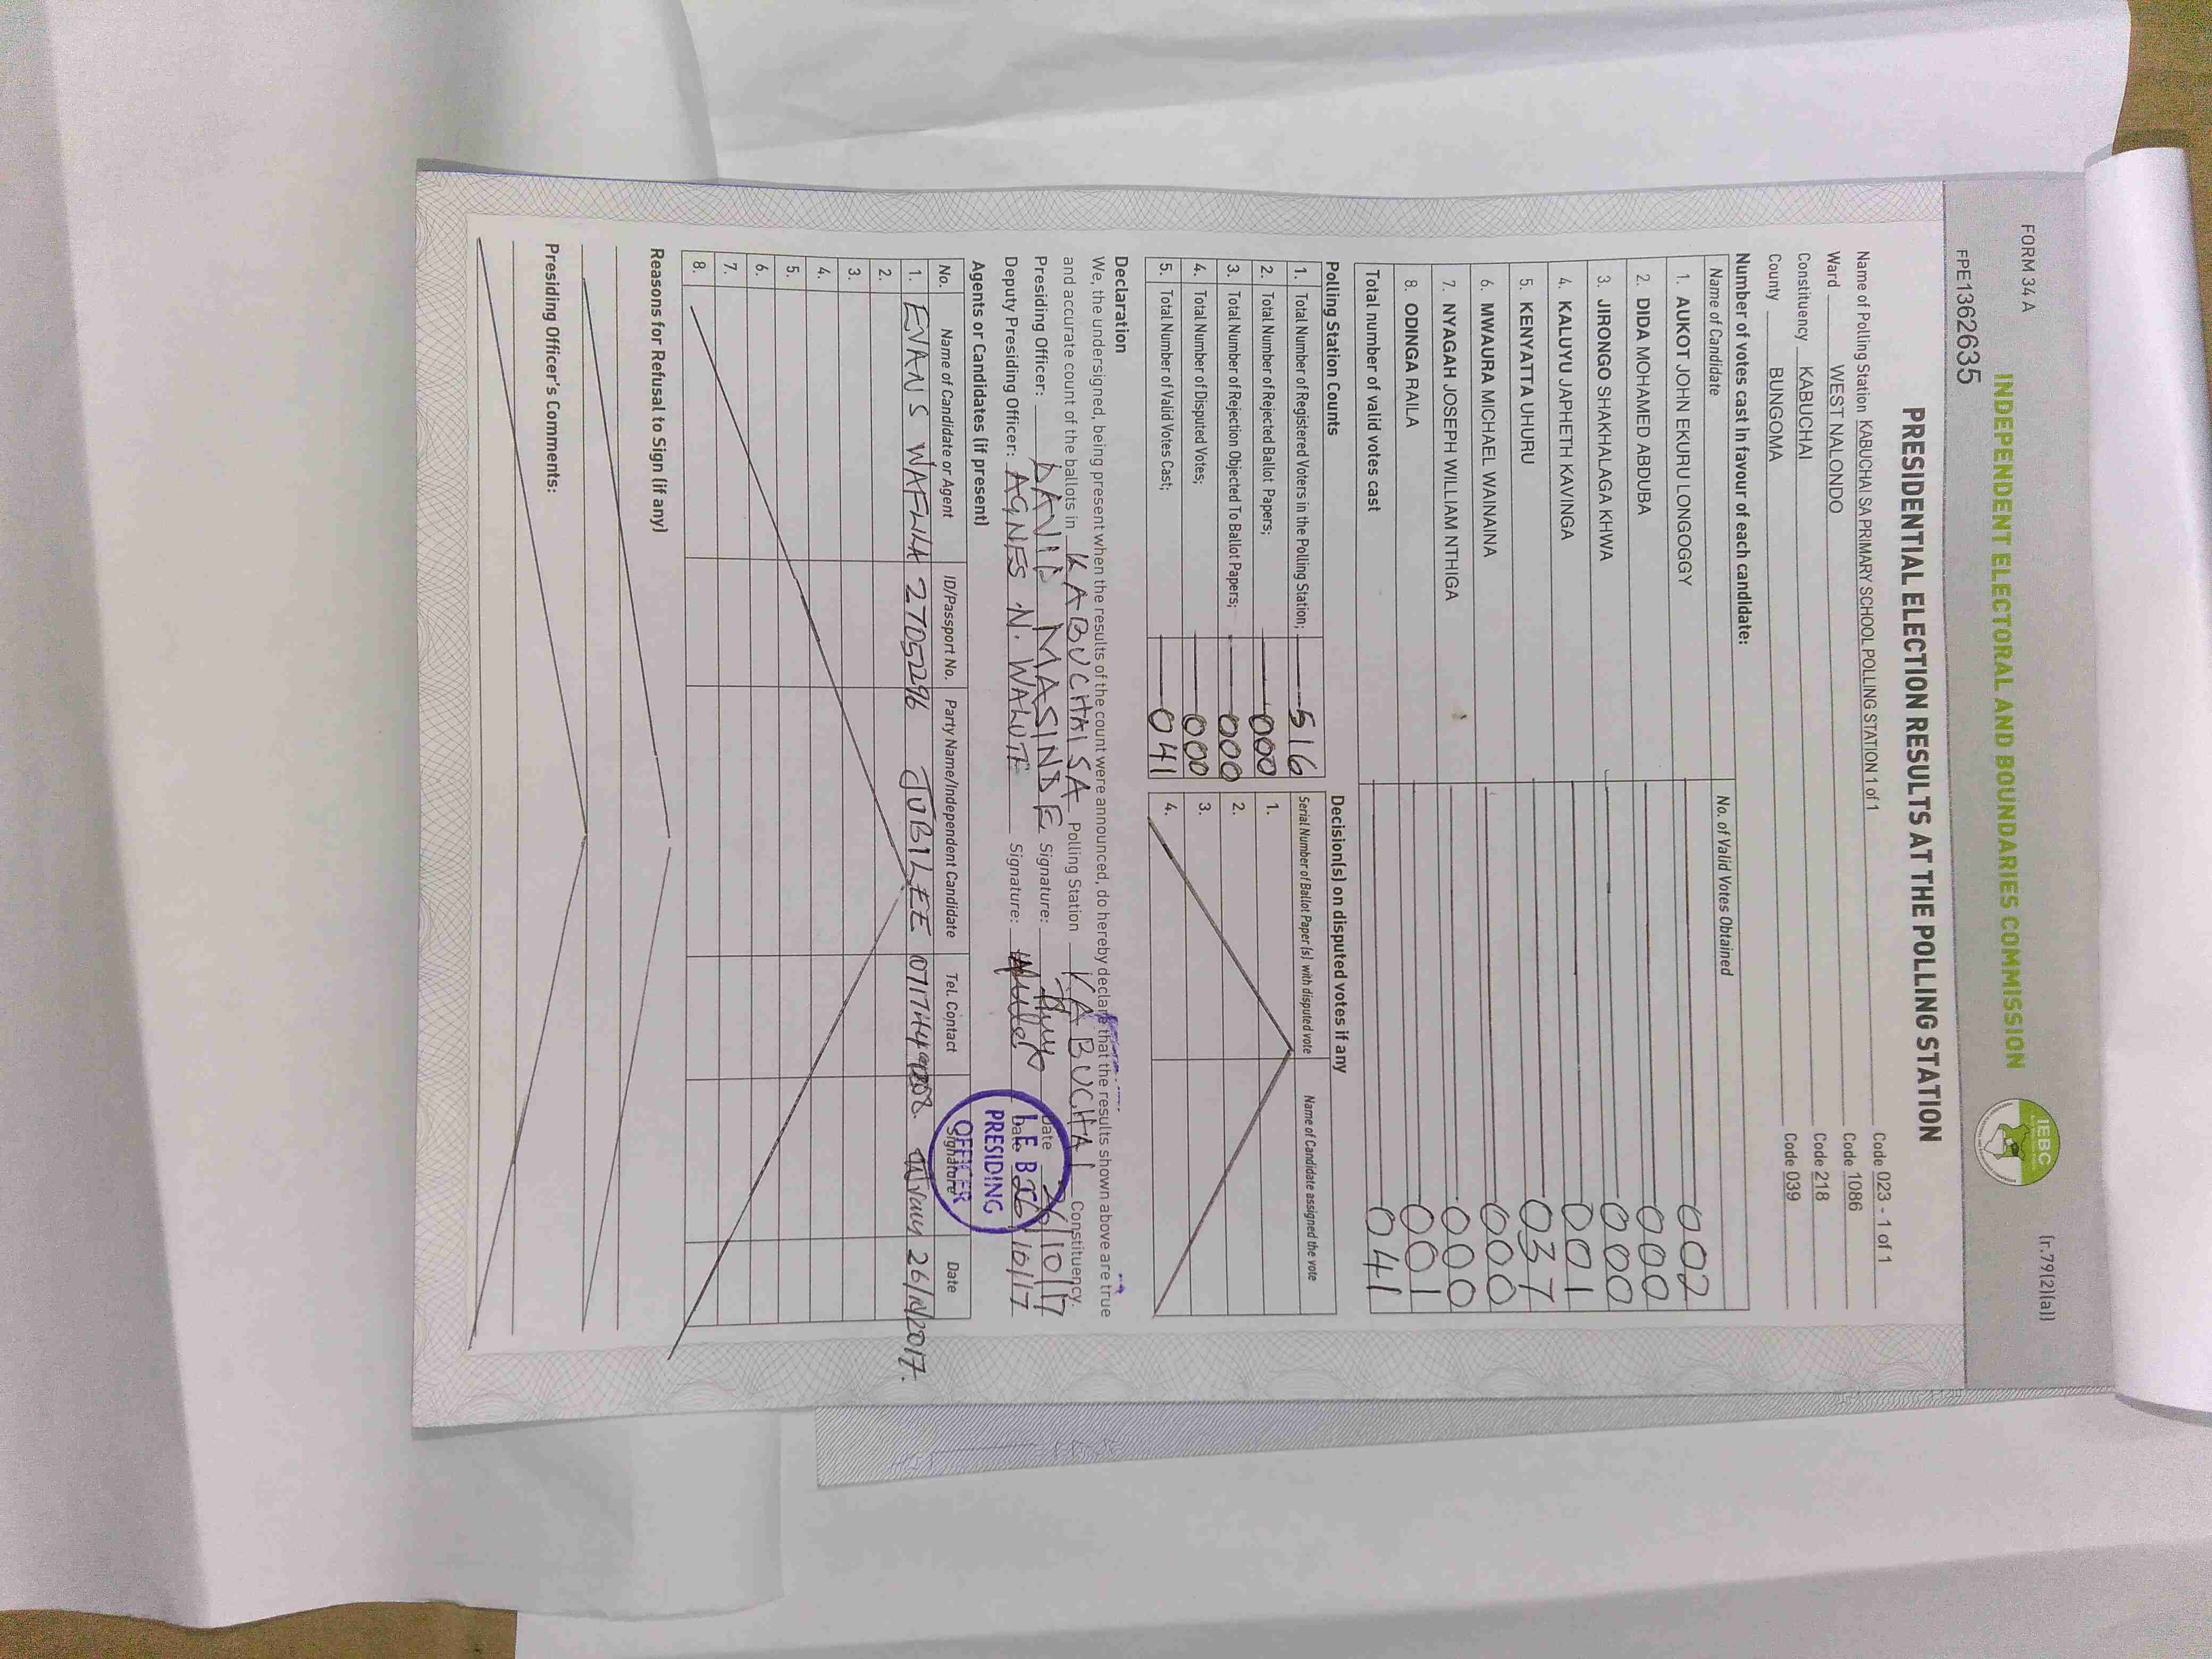 FORM 34 A
(r.79(2)(a))
INDEPENDENT ELECTORAL AND BOUNDARIES COMMISSION
IEBC
FPE1362635
PRESIDENTIAL ELECTION RESULTS AT THE POLLING STATION
Name of Polling Station KABUCHAI SA PRIMARY SCHOOL POLLING STATION 1 of 1 Code 023 - 1 of 1
Ward WEST NALONDO Code 1086
Constituency KABUCHAI Code 218
County BUNGOMA Code 039
Number of votes cast in favour of each candidate:
Name of Candidate No. of Valid Votes Obtained
1. AUKOT JOHN EKURU LONGOGGY 002
2. DIDA MOHAMED ABDUBA 000
3. JIRONGO SHAKHALAGA KHWA 000
4. KALUYU JAPHETH KAVINGA 001
5. KENYATTA UHURU 037
6. MWAURA MICHAEL WAINAINA 000
7. NYAGAH JOSEPH WILLIAM NTHIGA 000
8. ODINGA RAILA 001
Total number of valid votes cast 041
Polling Station Counts
1. Total Number of Registered Voters in the Polling Station; 516
2. Total Number of Rejected Ballot Papers; 000
3. Total Number of Rejection Objected To Ballot Papers; 000
4. Total Number of Disputed Votes; 000
5. Total Number of Valid Votes Cast; 041
Decision(s) on disputed votes if any
Serial Number of Ballot Paper(s) with disputed vote Name of Candidate assigned the vote
1.
2.
3.
4.
Declaration
We, the undersigned, being present when the results of the count were announced, do hereby declare that the results shown above are true
and accurate count of the ballots in KABUCHAI SA Polling Station KABUCHAI Constituency.
Presiding Officer: DAVID MASINDE Signature: Date 26/10/17
Deputy Presiding Officer: AGNES N. WALUTE Signature: Date 26/10/17
I E B C
PRESIDING
OFFICER
Agents or Candidates (if present)
No. Name of Candidate or Agent ID/Passport No. Party Name/Independent Candidate Tel. Contact Signature Date
1. EVANS WAFULA 27052296 JUBILEE 26/10/2017.
2.
3.
4.
5.
6.
7.
8.
Reasons for Refusal to Sign (if any)
Presiding Officer's Comments: